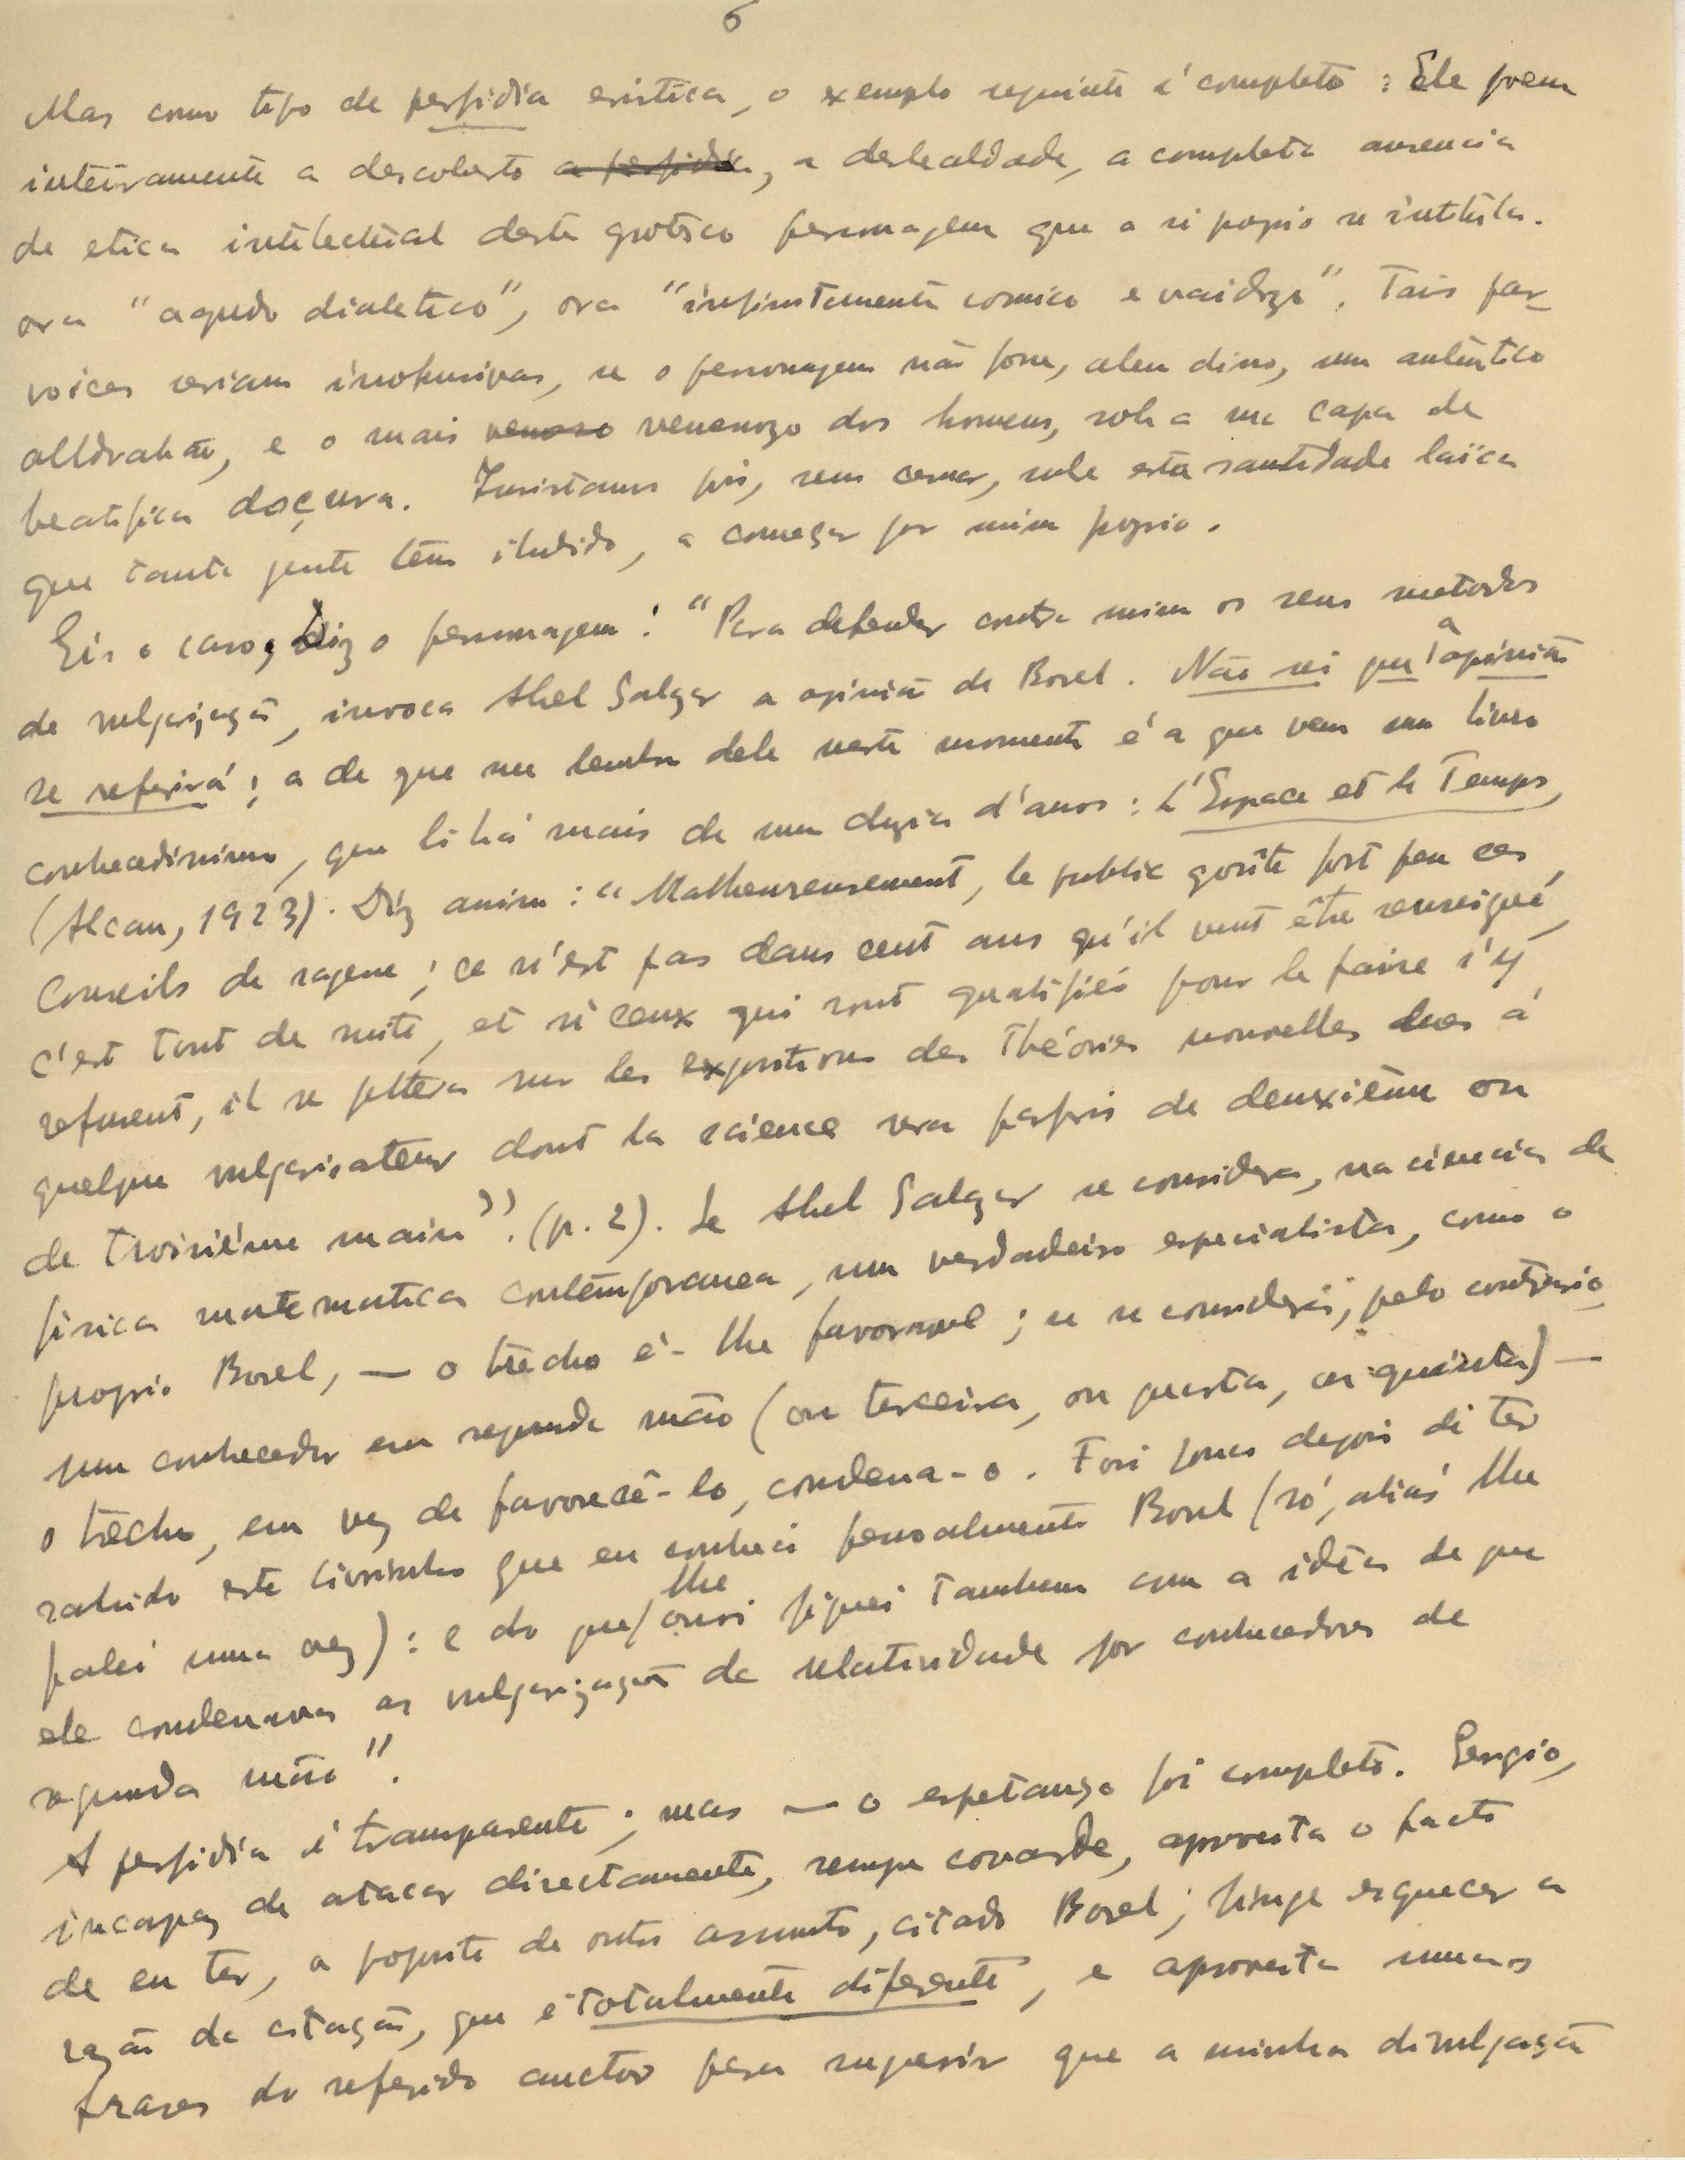 6
Mas como tipo de perfidia eristica, o exemplo seguinte é completo : Ele poem
inteiramente a descoberto a perfidia, a deslealdade, a completa ausencia
de etica intelectual deste grotesco personagem que a si propio se intitula
ora "agudo dialetico", ora "infinitamente comico e vaidozo". Tais par-
voices seriam inofensivas, se o personagem não fosse, alem disso, um autêntico
aldrabão, e o mais venoso venenozo dos homens, sob a sua capa de
beatifica doçura. Insistamos pois, sem cessar, sobre esta santidade laïca
que tanta gente tem iludido, a começar por mim proprio.
Eis o caso; diz o personagem : "Para defender contra mim os seus metodos
de vulgarização, invoca Abel Salazar a opinião de Borel. Não sei a que opinião
se referirá ; a de que me lembro dele neste momento é a que vem num livro
conhecidissimo, que li há mais de uma duzia d'anos : L'Espace et le Temps,
(Alcan, 1923). Diz assim : "Malheureusement, le public goûte fort peu ces
conseils de sagesse ; ce n'est pas dans cent ans qu'il veut être renseigné,
c'est tout de suite, et si ceux qui sont qualifiés pour le faire s'y
refusent, il se jettera sur les expositions des théories nouvelles dues à
quelque vulgarisateur dont la science sera parfois de deuxième ou
de troisième main". (p. 2). Se Abel Salazar se considera, na ciencia da
fisica matematica contemporanea, um verdadeiro especialista, como o
proprio Borel, — o trecho é-lhe favoravel ; se se considera, pelo contrario,
um conhecedor em segunda mão (ou terceira, ou quarta, ou quinta) —
o trecho, em vez de favorecê-lo, condena-o. Foi pouco depois di ter
sahido este livrinho que eu conheci pessoalmente Borel (só, aliás lhe
falei uma vez) : e do que lhe ouvi fiquei tambem com a idéa de que
ele condenava as vulgarização da relatividade por conhecedores de
segunda mão".
A perfidia é transparente ; mas — o espetanço foi completo. Sergio,
incapaz de atacar directamente, sempre covarde, aproveita o facto
de eu ter, a proposito de outro assunto, citado Borel ; finge esquecer a
razão da citação, que é totalmente diferente, e aproveita umas
frases do referido auctor para sugerir que a minha divulgação